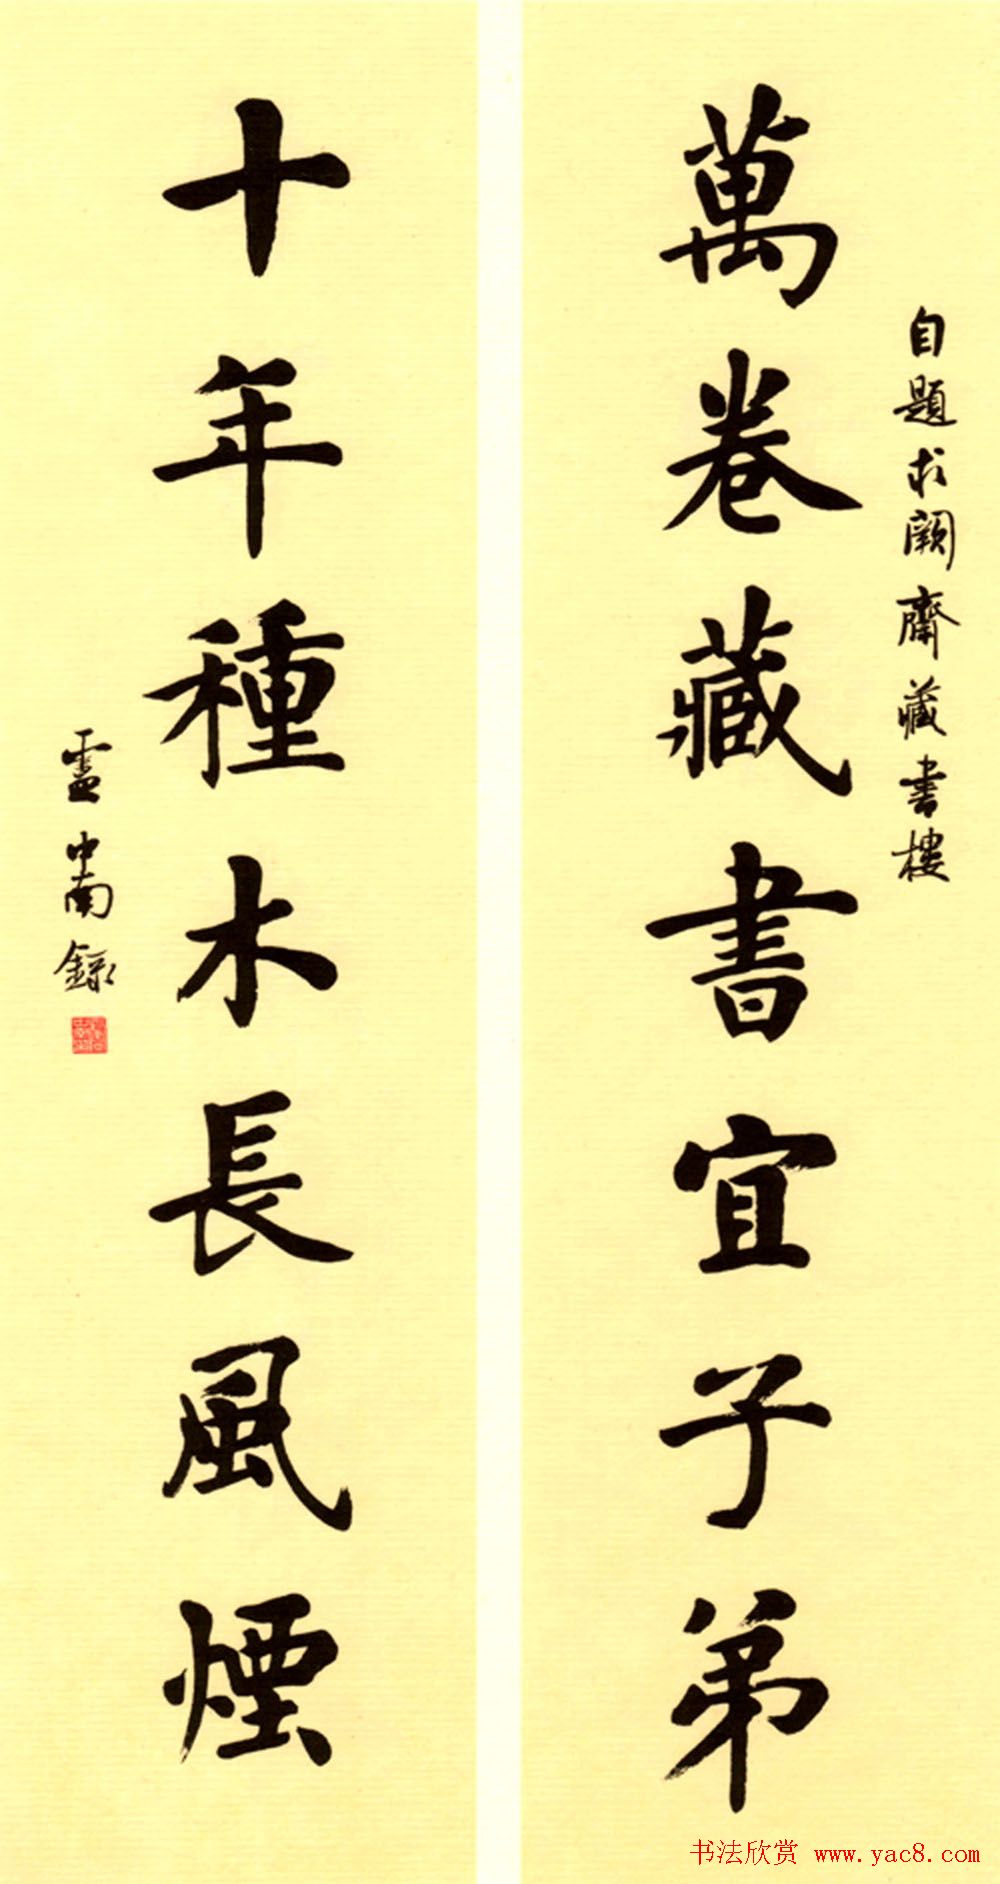 自題求闕齋藏書樓
萬卷藏書宜子弟
十年種木長風煙
盧中南錄
书法欣赏 www.yac8.com